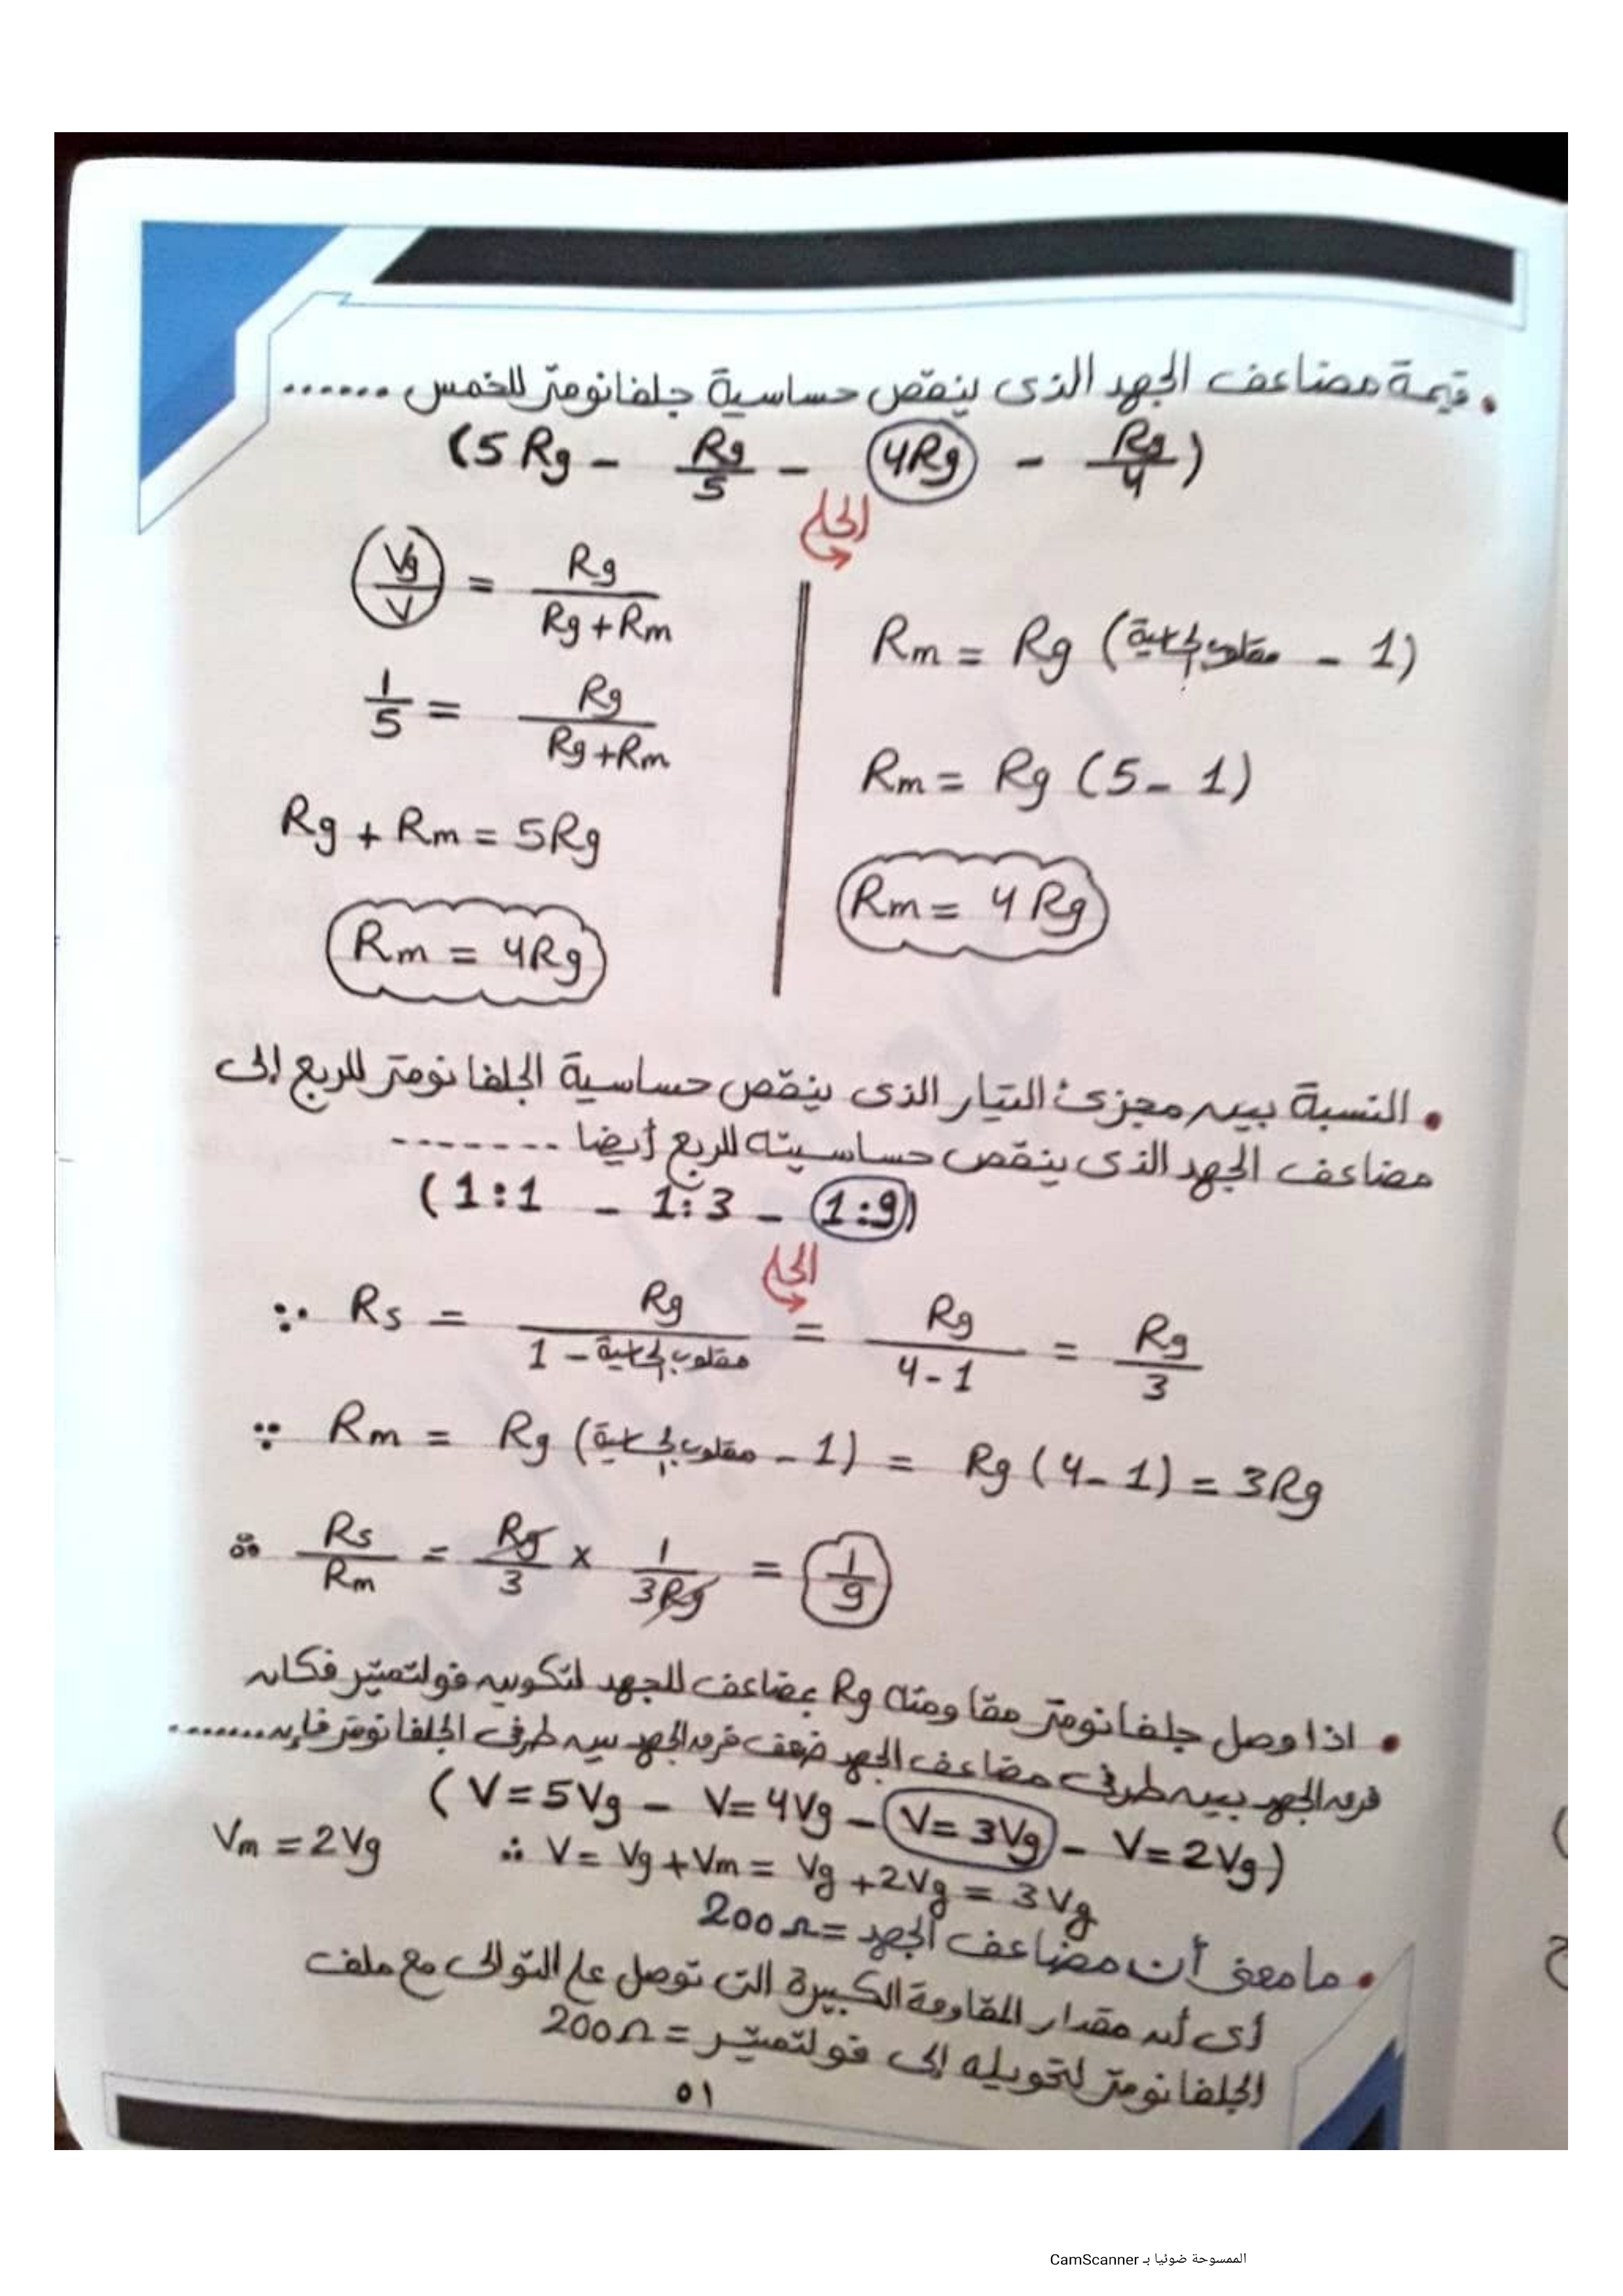 • قيمة مضاعف الجهد الذى ينقص حساسية جلفانومتر للخمس ......
(5 Rg - Rg/5 - 4Rg - Rg/4)
الحل
Vg/V = Rg/(Rg+Rm)
1/5 = Rg/(Rg+Rm)
Rg + Rm = 5Rg
Rm = 4Rg
Rm = Rg (مقلوب الحساسية - 1)
Rm = Rg (5 - 1)
Rm = 4 Rg
• النسبة بين مجزئ التيار الذى ينقص حساسية الجلفانومتر للربع إلى
مضاعف الجهد الذى ينقص حساسيته للربع أيضا -------
(1:1 - 1:3 - 1:9)
الحل
∵ Rs = Rg/(مقلوب الحساسية - 1) = Rg/(4-1) = Rg/3
∵ Rm = Rg (مقلوب الحساسية - 1) = Rg (4-1) = 3Rg
∴ Rs/Rm = Rg/3 × 1/3Rg = 1/9
• اذا وصل جلفانومتر مقاومته Rg بمضاعف للجهد لتكوين فولتميتر فكان
فرق الجهد بين طرفى مضاعف الجهد ضعف فرق الجهد بين طرفى الجلفانومتر فإن .......
(V=5Vg - V=4Vg - V=3Vg - V=2Vg)
Vm = 2Vg ∴ V = Vg+Vm = Vg+2Vg = 3Vg
• ما معنى أن مضاعف الجهد = 200Ω
أى أن مقدار المقاومة الكبيرة التى توصل على التوالى مع ملف
الجلفانومتر لتحويله إلى فولتميتر = 200Ω
٥١
الممسوحة ضوئيا بـ CamScanner